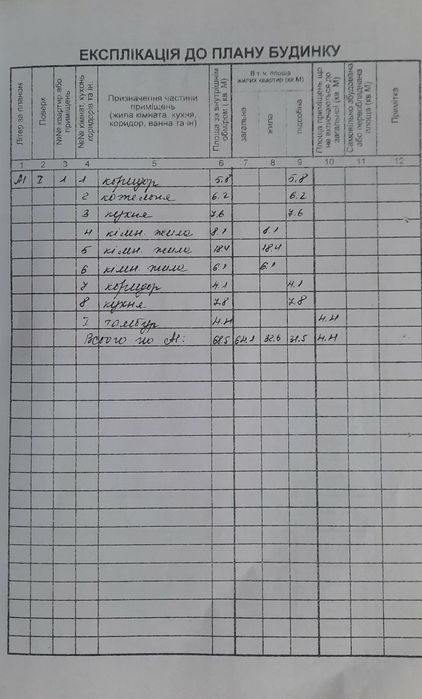 ЕКСПЛІКАЦІЯ ДО ПЛАНУ БУДИНКУ
Літер за планом
Поверх
№№ квартир або приміщень
№№ кімнат, кухонь коридорів та ін.
Призначення частини приміщень (жила кімната, кухня, коридор, ванна та ін)
Площа за внутрішнім обміром (кв.М)
В т.ч. площа жилих квартир (кв.М)
загальна
жила
підсобна
Площа приміщень, що не включаються до загальної (кв.М)
Самовільно збудована або переобладнана площа (кв.М)
Примітка
1 2 3 4 5 6 7 8 9 10 11 12
А1 I 1 1 коридор 5.8 5.8
2 котельня 6.2 6.2
3 кухня 7.6 7.6
4 кімн. жила 8.1 8.1
5 кімн. жила 18.4 18.4
6 кімн. жила 6.1 6.1
7 коридор 4.1 4.1
8 кухня 7.8 7.8
I тамбур 4.4 4.4
Всього по А1: 68.5 64.1 32.6 31.5 4.4